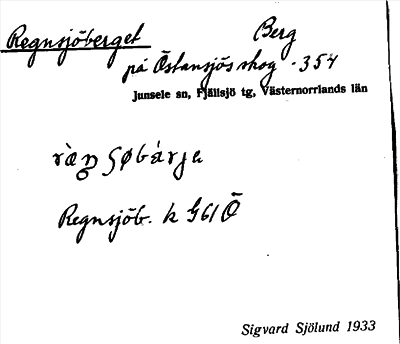 Regnsjöberget Berg
på Östansjös skog - 354
Junsele sn, Fjällsjö tg, Västernorrlands län
Regnsjöb. k G61 Ö
Sigvard Sjölund 1933